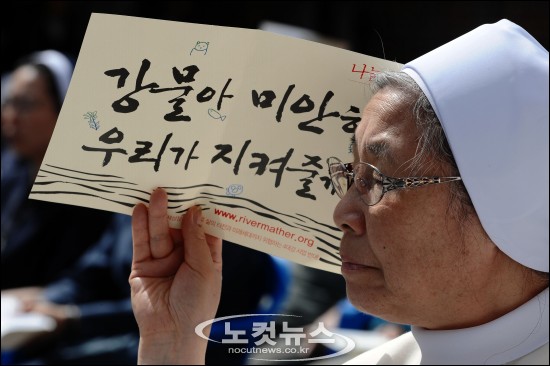 나
강물아 미안해
우리가 지켜줄게
www.rivermather.org
노컷뉴스
nocutnews.co.kr